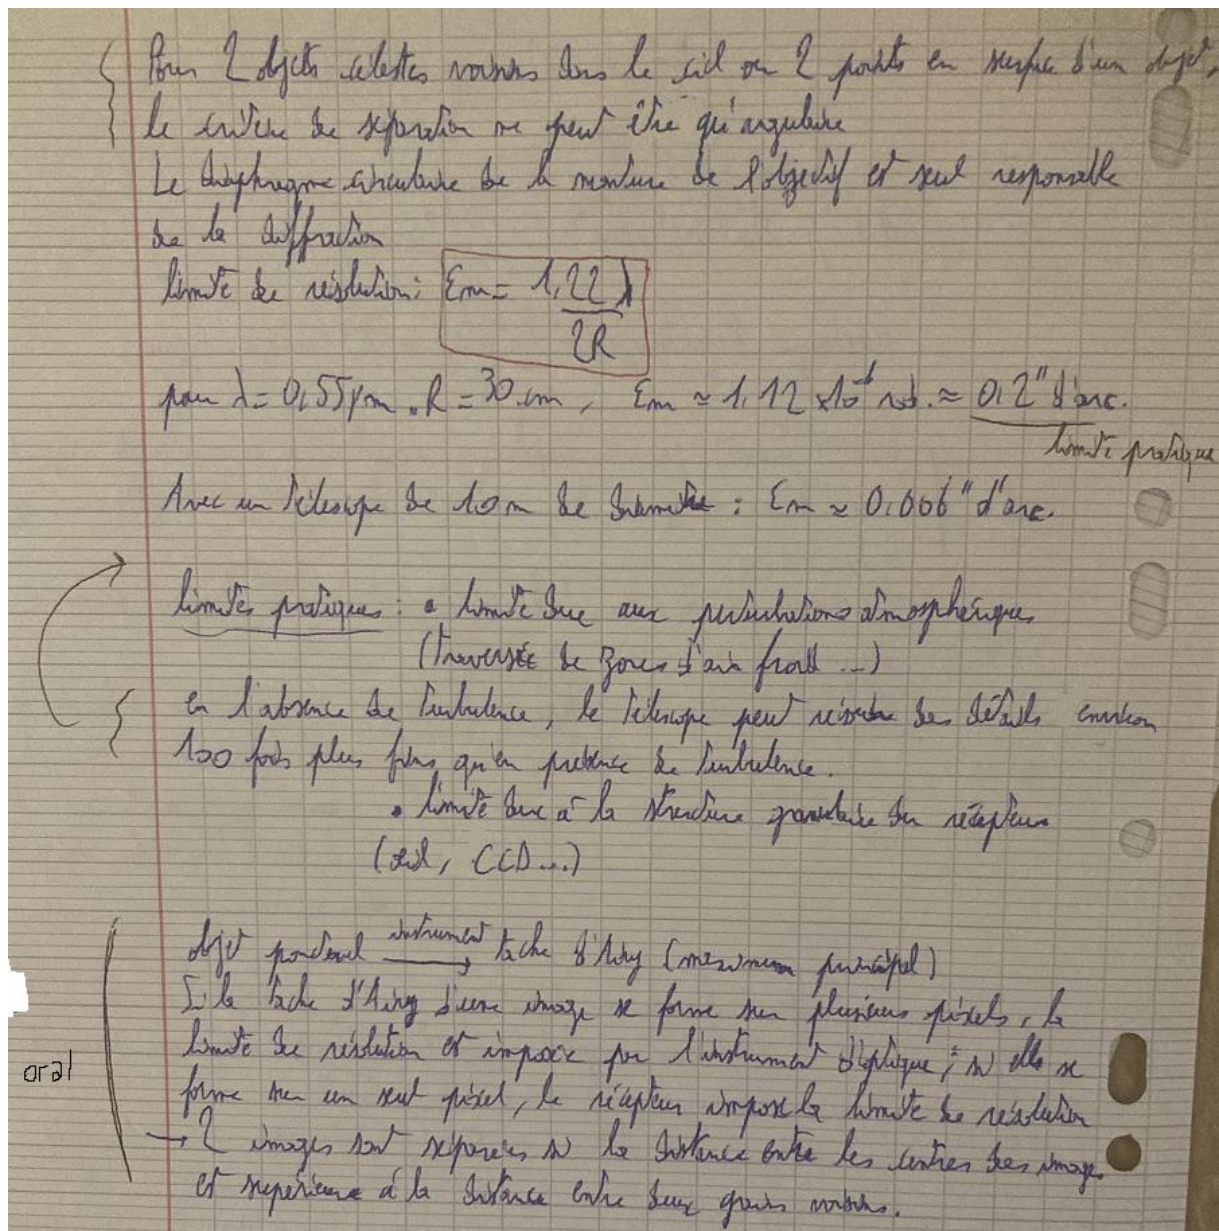 Pour 2 objets célestes voisins dans le ciel ou 2 points en surface d'un objet,
le critère de séparation ne peut être qu'angulaire
Le diaphragme circulaire de la monture de l'objectif est seul responsable
de la diffraction
limite de résolution : εm = 1,22 λ / 2R
pour λ = 0,55 μm, R = 30 cm, εm ≈ 1,12 x10⁻⁶ rad. ≈ 0,2" d'arc.
limite pratique
Avec un télescope de 10 m de diamètre : εm ≈ 0,006" d'arc.
limites pratiques : • limite due aux perturbations atmosphériques
(traversée de zones d'air froid ...)
en l'absence de turbulence, le télescope peut résoudre des détails environ
100 fois plus fins qu'en présence de turbulence.
• limite due à la structure granulaire du récepteur
(œil, CCD...)
objet ponctuel instrument → tache d'Airy (maximum principal)
Si la tache d'Airy d'une image se forme sur plusieurs pixels, la
limite de résolution est imposée par l'instrument d'optique ; si elle se
oral
forme sur un seul pixel, le récepteur impose la limite de résolution
→ 2 images sont séparées si la distance entre les centres des images
est supérieure à la distance entre deux grains voisins.